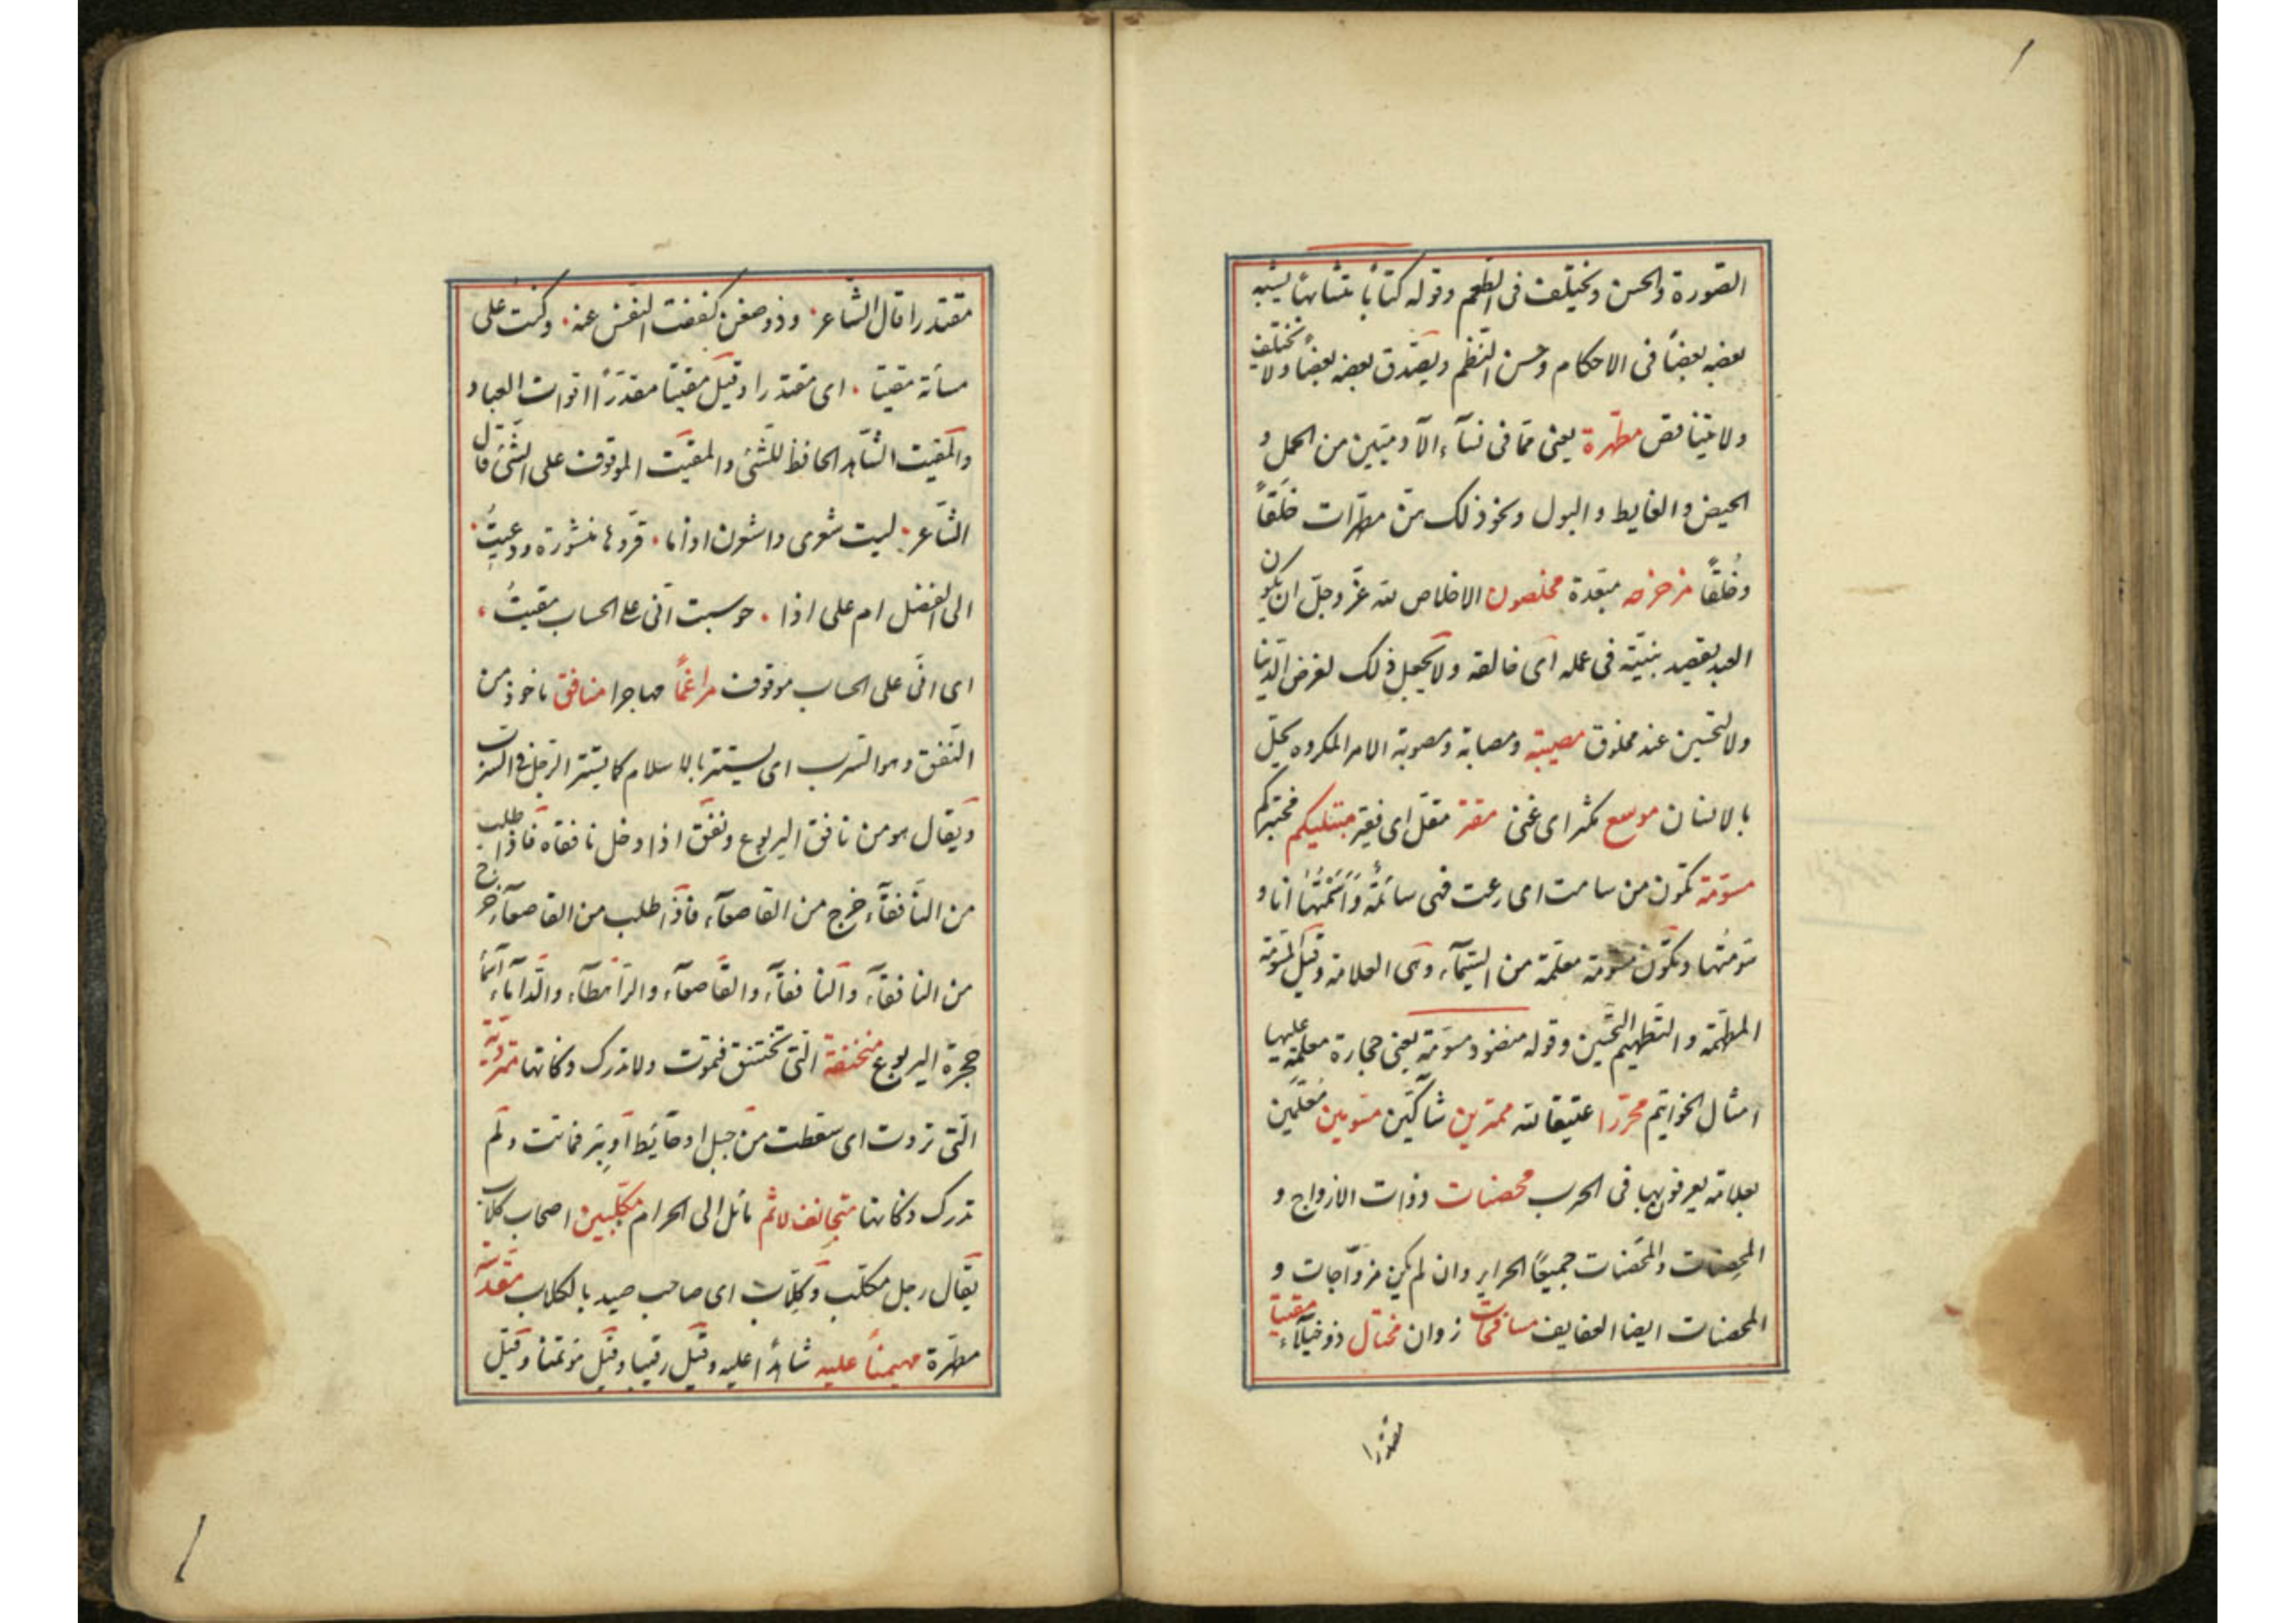 الصّورة والحسن ويختلف فى الطّعم وقوله كتابًا متشابهًا يشبه
بعضه بعضًا فى الاحكام وحسن النّظم ويصّدق بعضه بعضًا ولا يختلف
ولا يتناقض مطهّرة يعنى ممّا فى نسآء الآدميّين من الحمل و
الحيض والغايط والبول ونحو ذلك منّ مطهّرات خَلقًا
وخُلقًا مزحزحه مبعدة مخلصون الاخلاص لله عزّ وجلّ ان يكون
العبد يقصد بنيّته فى عمله اى خالقه ولا يجعل ذلك لغرض الدّنيا
ولا لتحسين عند مخلوق مصيبة ومصابة ومصوبة الامر المكروه يحلّ
بالانسان موسع مكثر اى غنى مقتر مقلّ اى فقير مبتليكم مختبركم
مسوّمة تكون من سامت اى رعت فهى سائمة وأسمتُها انا و
سوّمتُها وتكون مسوّمة معلمة من السّيمآء وهى العلامة وقيل المسوّمة
المطهّمة والتّطهيم التّحسين وقوله منضود مسوّمة يعنى حجارة معلمة عليها
امثال الخواتيم محرّرا عتيقا لله ممترين شاكّين مسوّمين مُعلّمين
بعلامة يعرفون بها فى الحرب محصنات ذوات الازواج و
المحصِنات والمحَصنات جميعًا الحراير وان لم يكن مزوّجات و
المحصنات ايضا العفايف مسافحات زوان مختال ذو خيلآء مقيتا
مقتدرا
مقتدرا قال الشّاعر وذو ضغن كففت النّفس عنه وكنت على
مسآته مقيتا اى مقتدرا وقيل مقيتا مقدّرًا اقوات العباد
والمقيت الشّاهد الحافظ للشّئ والمقيت الموقوف على الشّئ قال
الشّاعر ليت شعرى واشعرن اذا ما قرّبوها منشورة ودعيتُ
الى الفضل ام على اذا حوسبت انّى على الحساب مقيتُ
اى انّى على الحساب موقوف مراغمًا مهاجرا منافق ماخوذ من
النّفق وهو السّرب اى يستتر بالاسلام كما يستتر الرّجل فى السّرب
ويقال هو من نافق اليربوع ونفق اذا دخل نافقاه فاذا طلب
من النّافقآء خرج من القاصعآء فاذا طلب من القاصعآء خرج
من النّافقآء والنّافقآء والقاصعآء والرّاهطآء والدّامآء اسمآ
جحرة اليربوع منخنقة التّى تختنق فتموت ولا تدرك ذكاتها متردّية
التّى تردّت اى سقطت من جبل او حائط او بئر فماتت ولم
تدرك ذكاتها متجانف لاثم مائل الى الحرام مكلّبين اصحاب كلاب
يقال رجل مكلّب وكلّاب اى صاحب صيد بالكلاب مقدّسة
مطهّرة مهيمنًا عليه شاهدًا عليه وقيل رقيبا وقيل مؤتمنا وقيل